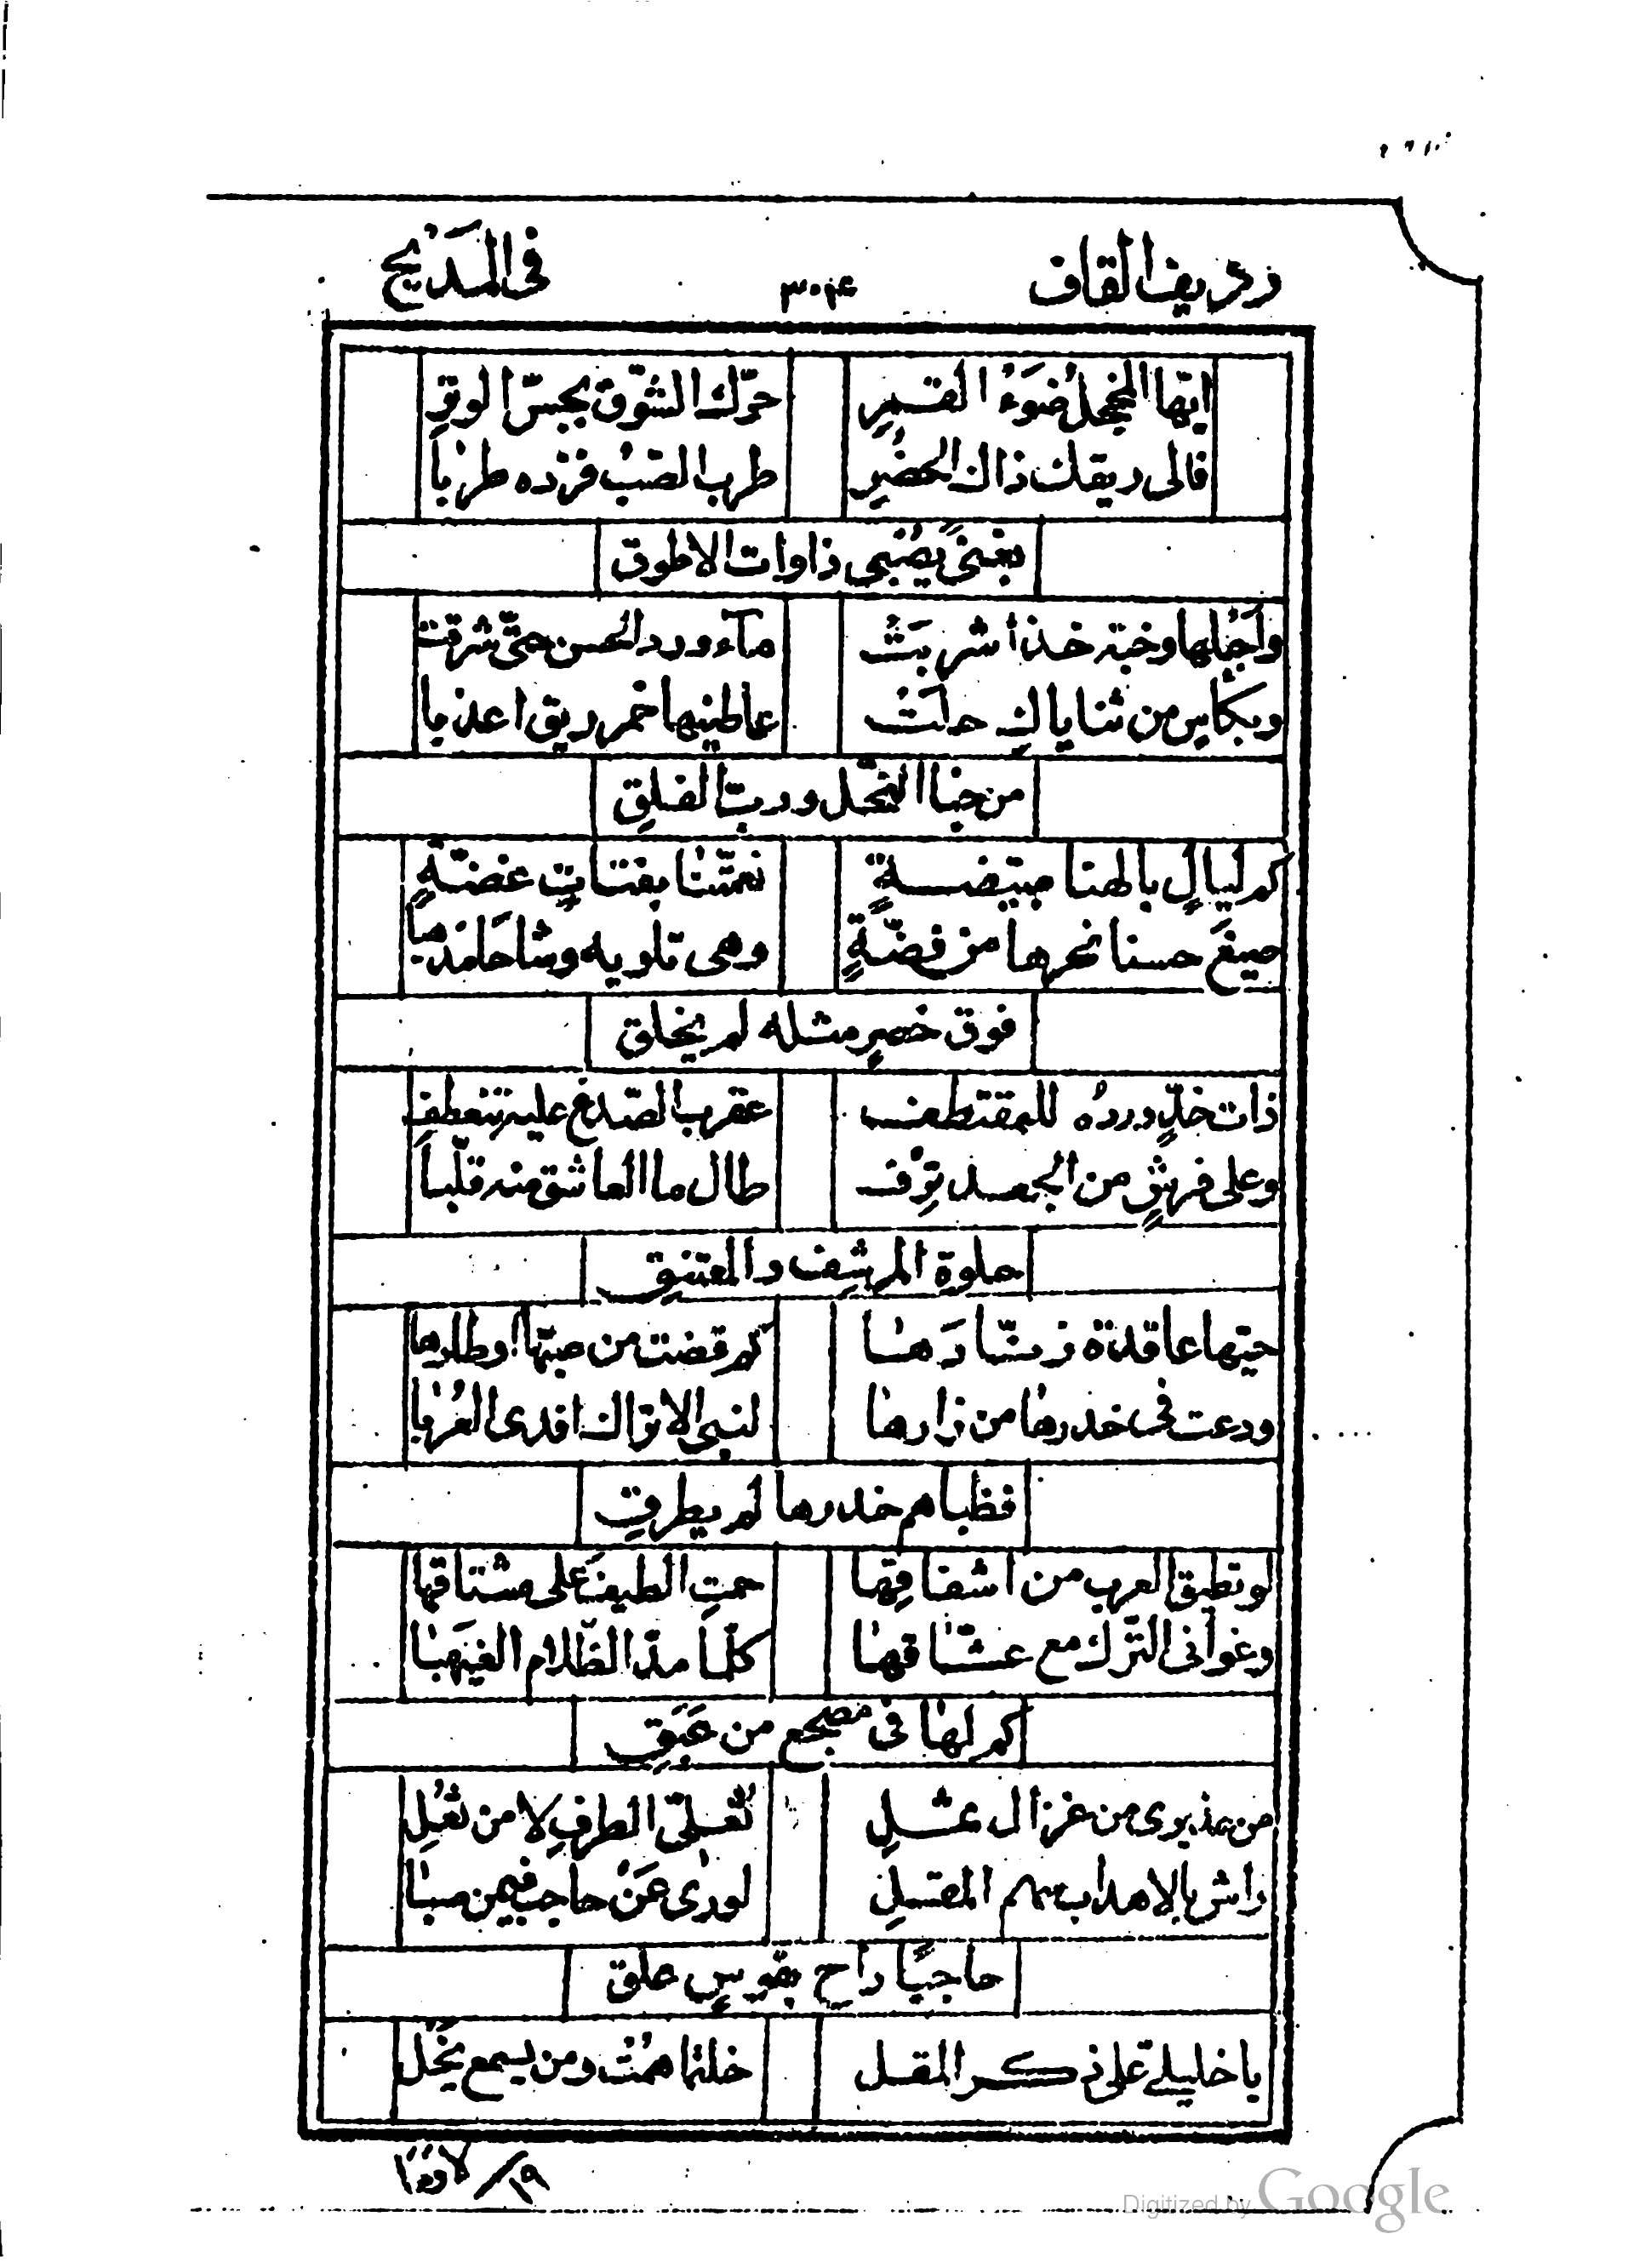 في رديف القاف ٣٠٤ في المديح
ايّها المخجل ضوَءُ القمرِ حرّك الشّوق بجسّ الوترِ
فالى ريقك ذاك الخضرِ طرب الصّبُ فزده طربا
بغنىً يصُبي ذاوات الاطوق
واجُلها وخبة خذ أشربَتْ مآء ورد الحسن حتّى شرقت
وبكأسٍ من ثناياكِ حلَتْ عاطنيها خمر ريق اعذبا
من جنا النّحل وربّ الفلقِ
كم ليالٍ بالهنا مبيّضةٍ نعمّتنا بفتاتٍ غضّةٍ
صيغَ حسنا نحرها من فضّةٍ وهي تلويه وشاحَا مذهبا
فوق خصرٍ مثله لم يخلق
ذات خدٍّ وردُه للمقتطف عقرب الصّدغ عليه تنعطف
وعلى فرشٍ من الجعد ترِف طال ما العاشق منه قلّباَ
حلوة المرشف والمعتنقِ
حيّها عاقدة زنّارَها كم قضت من صبّها اوطارها
ودعت في خدرها من زارها لنبي الاتراك افدى العُرُبا
فظباهم خدرها لم يطرقِ
لو تطيق العرب من اشفاقِها حمتِ الطيفَ على مشتاقها
وغوانى التّرك مع عشّاقها كلّما مدّ الظّلام الغيهبا
كم لها فى مضجع من عبَقِ
من عذيرى من غزال ثملِ ثُعَليّ الطرفِ لا من ثعُلِ
راش بالاهداب سهم المقلِ لورىٰ عَنْ حاجب فيمن صبا
حاجبيًا راح بقوسٍ حلق
يا خليليّ على ذكر المقل خلتما همُت ومن يسمع يخَل
Digitized by Google